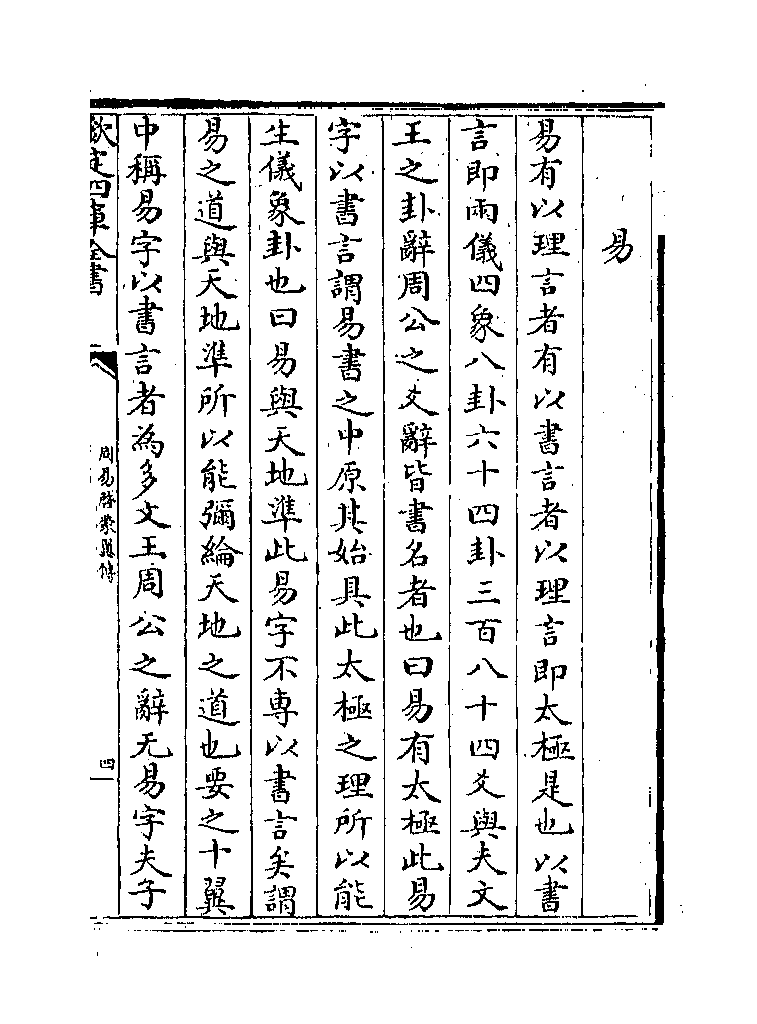 易
易有以理言者有以書言者以理言即太極是也以書
言即兩儀四象八卦六十四卦三百八十四爻與夫文
王之卦辭周公之爻辭皆書名者也曰易有太極此易
字以書言謂易書之中原其始具此太極之理所以能
生儀象卦也曰易與天地準此易字不專以書言矣謂
易之道與天地準所以能彌綸天地之道也要之十翼
中稱易字以書言者為多文王周公之辭无易字夫子
欽定四庫全書
周易啓蒙翼傳
四